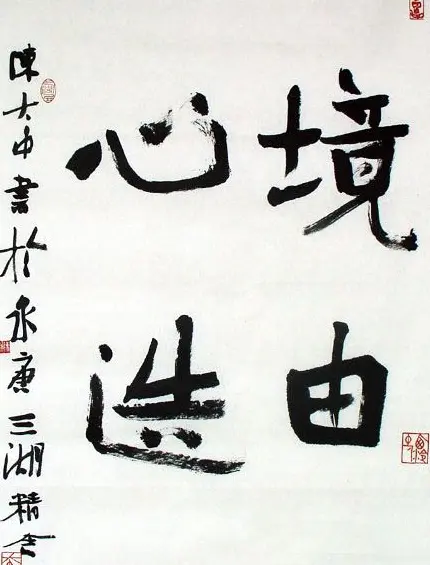 境由
心造
陈大中书於永康三湖精舍